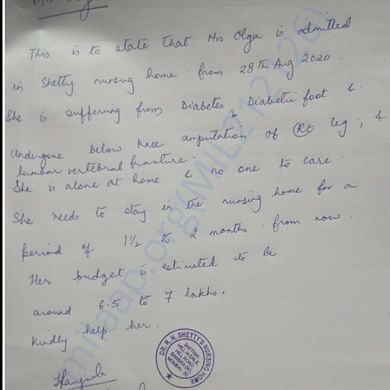 This is to state that Mrs Olga is admitted
in Shetty nursing home from 28th Aug 2020.
She is suffering from Diabetes, Diabetic foot &
Undergone below knee amputation of Rt leg, &
lumbar vertebral fracture.
She is alone at home & no one to care.
She needs to stay in the nursing home for a
period of 1½ to 2 months from now.
Her budget is estimated to be
around 6.5 to 7 lakhs.
Kindly help her.
DR. R. N. SHETTY'S NURSING HOME